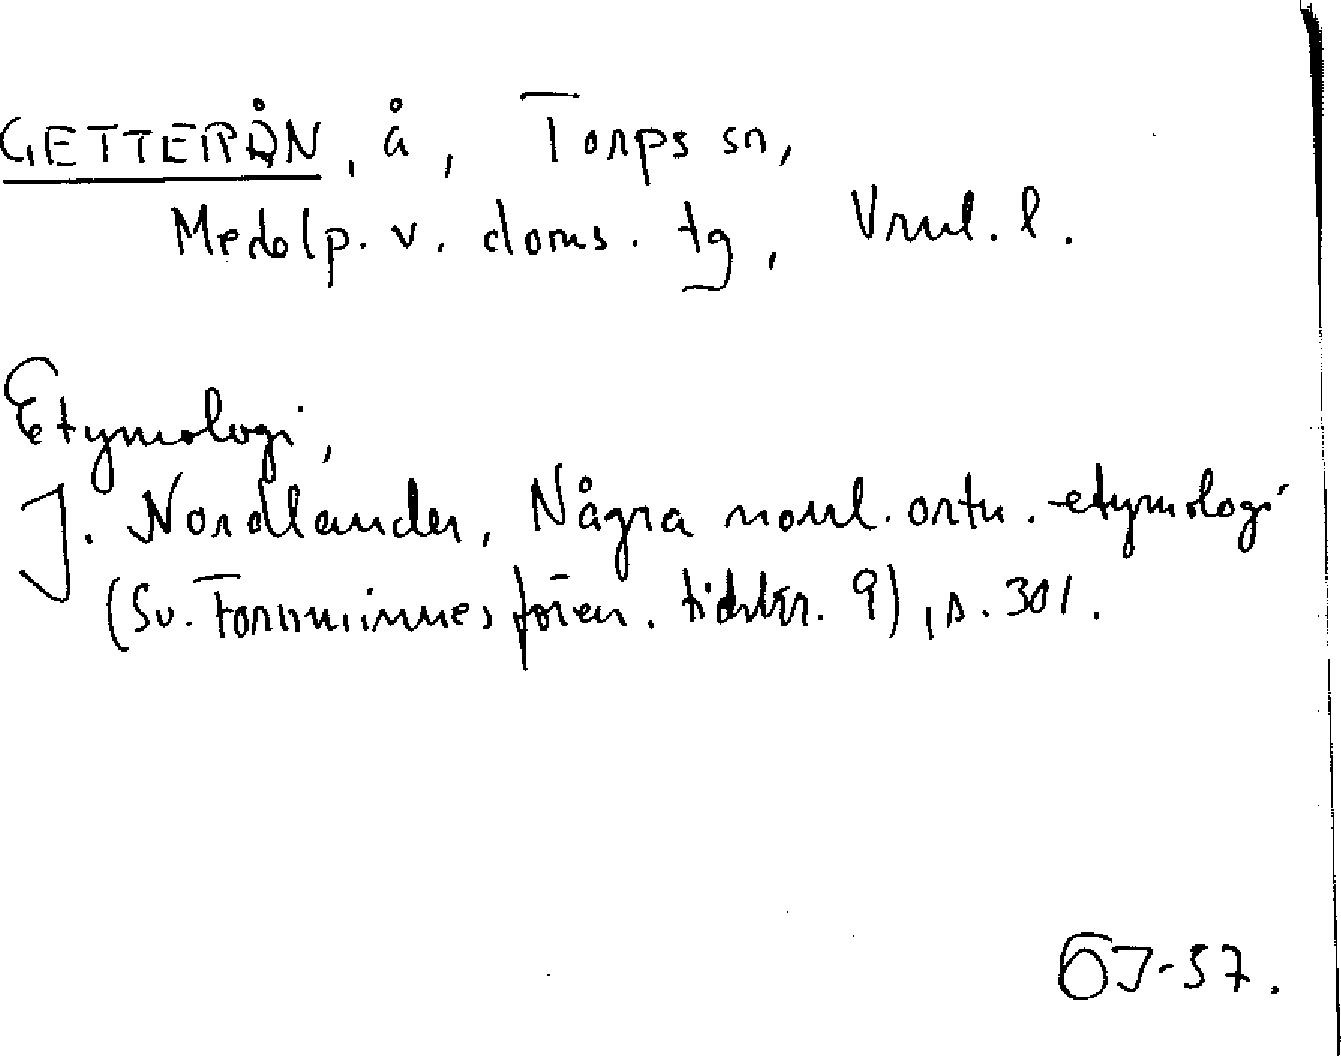 GETTERÅN, å, Torps sn,
Medelp. v. doms. tg, Vrnl. l.
Etymologi,
J. Nordlander, Några norrl. ortn. etymologi
(Sv. Fornminnesfören. tidskr. 9), s. 301.
ÖJ-57.